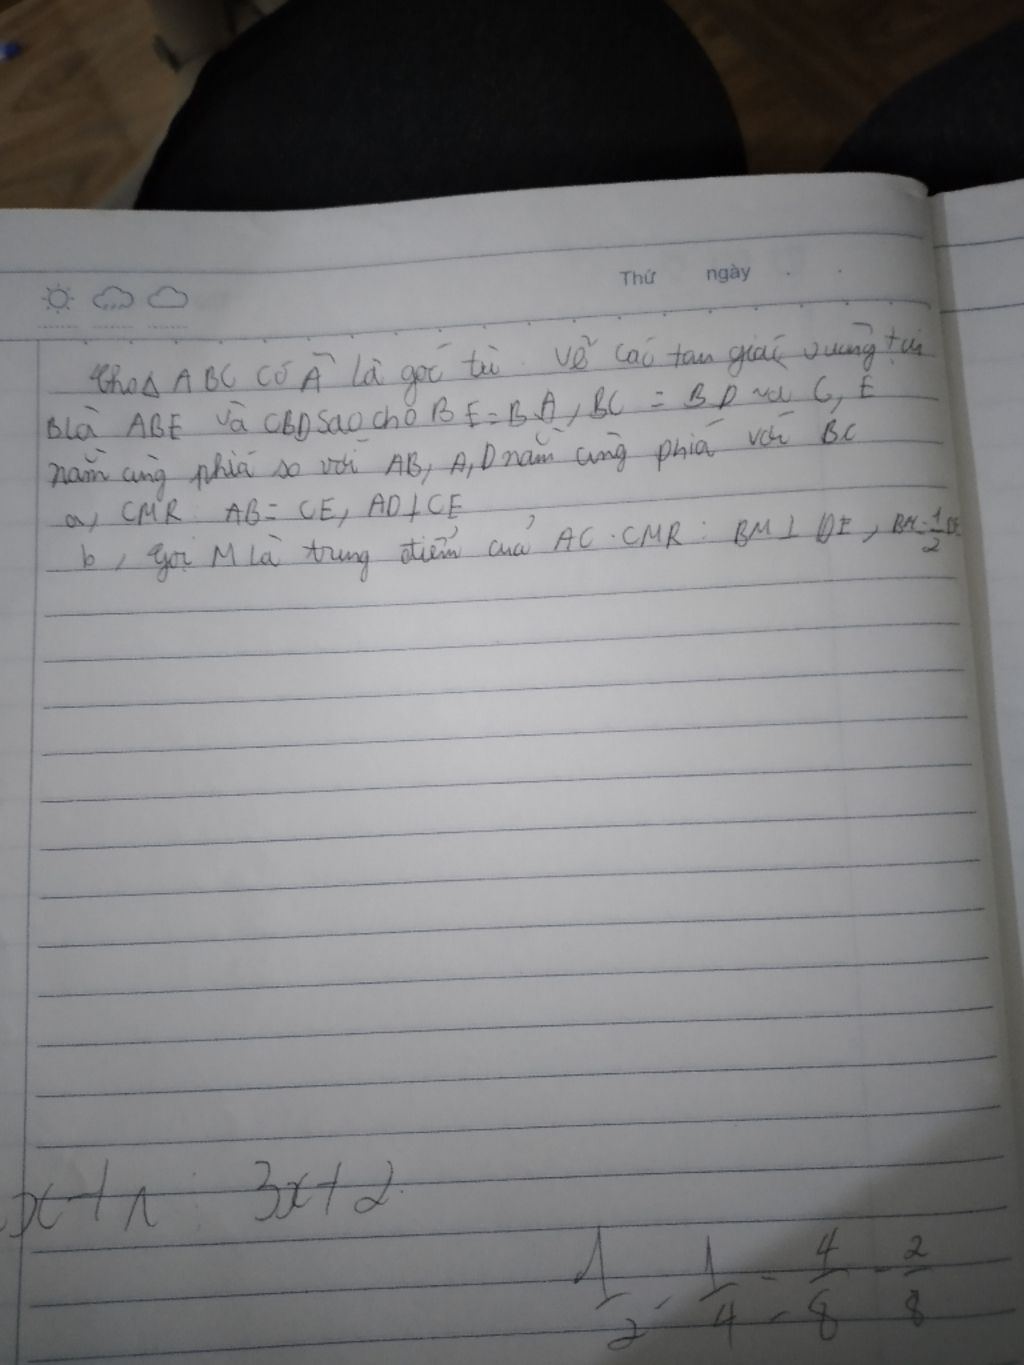 Thứ ngày
Cho Δ ABC có Â là góc tù. Vẽ các tam giác vuông tại
B là ABE và CBD sao cho BE = BA, BC = BD và C, E
nằm cùng phía so với AB, A, D nằm cùng phía với BC
a, CMR: AB = CE, AD ⊥ CE
b, Gọi M là trung điểm của AC. CMR: BM ⊥ DE, BM = 1/2 DE
x + 1 : 3x + 2
1/2 - 1/4 = 4/8 - 2/8